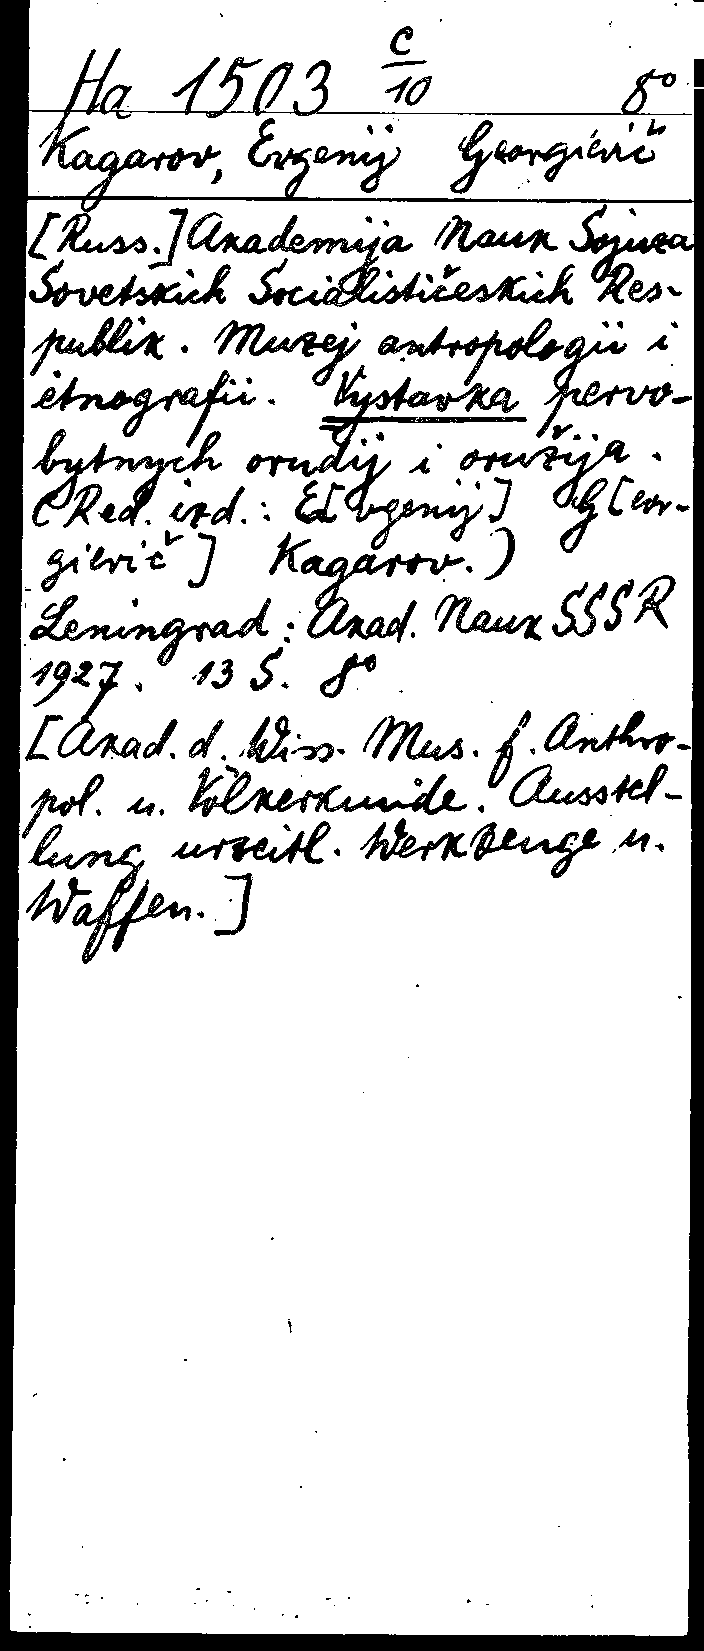 Ha 1503 c/10 8°
Kagarov, Evgenij Georgievič
[Russ.] Akademija Nauk Sojuza
Sovetskich Socialističeskich Res-
publik. Muzej antropologii i
ėtnografii. Vystavka pervo-
bytnych orudij i oružija.
(Red. izd.: E[vgenij] G[eor-
gievič] Kagarov.)
Leningrad: Akad. Nauk SSSR
1927. 13 S. 8°
[Akad. d. Wiss. Mus. f. Anthro-
pol. u. Völkerkunde. Ausstel-
lung urzeitl. Werkzeuge u.
Waffen.]